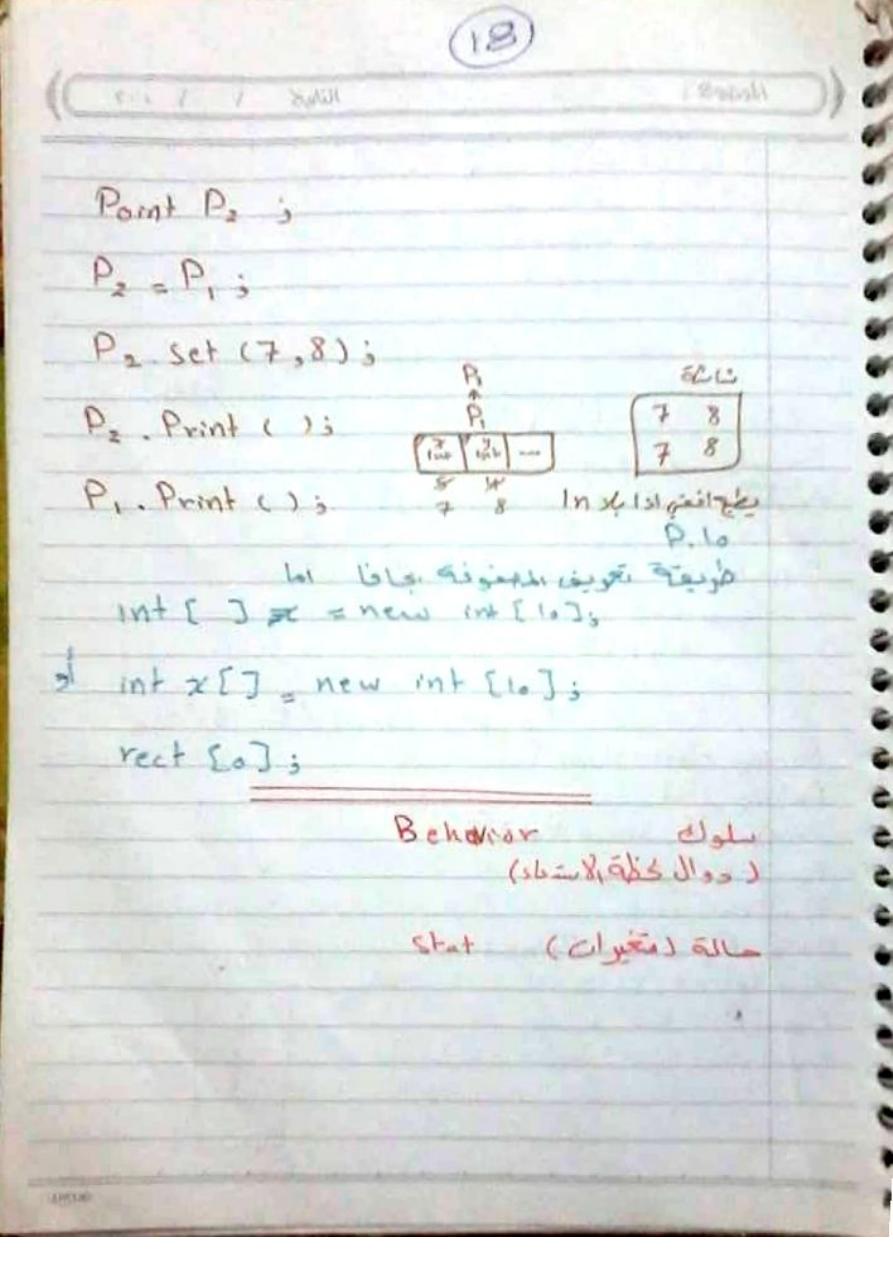 18
الموضوع : التاريخ / / ٢٠٠
Point P2 ;
P2 = P1 ;
P2 . set (7,8) ;
P2 . Print ( ) ;
P1 . Print ( ) ;
شاشة
7 8
7 8
P1
x int y int ---
7 8
اذا بلا ln
طريقة تعريف المصفوفة بجافا اما
int [ ] x = new int [10];
أو int x[] = new int [10] ;
rect [0] ;
Behavior سلوك
stat حالة (متغيرات)